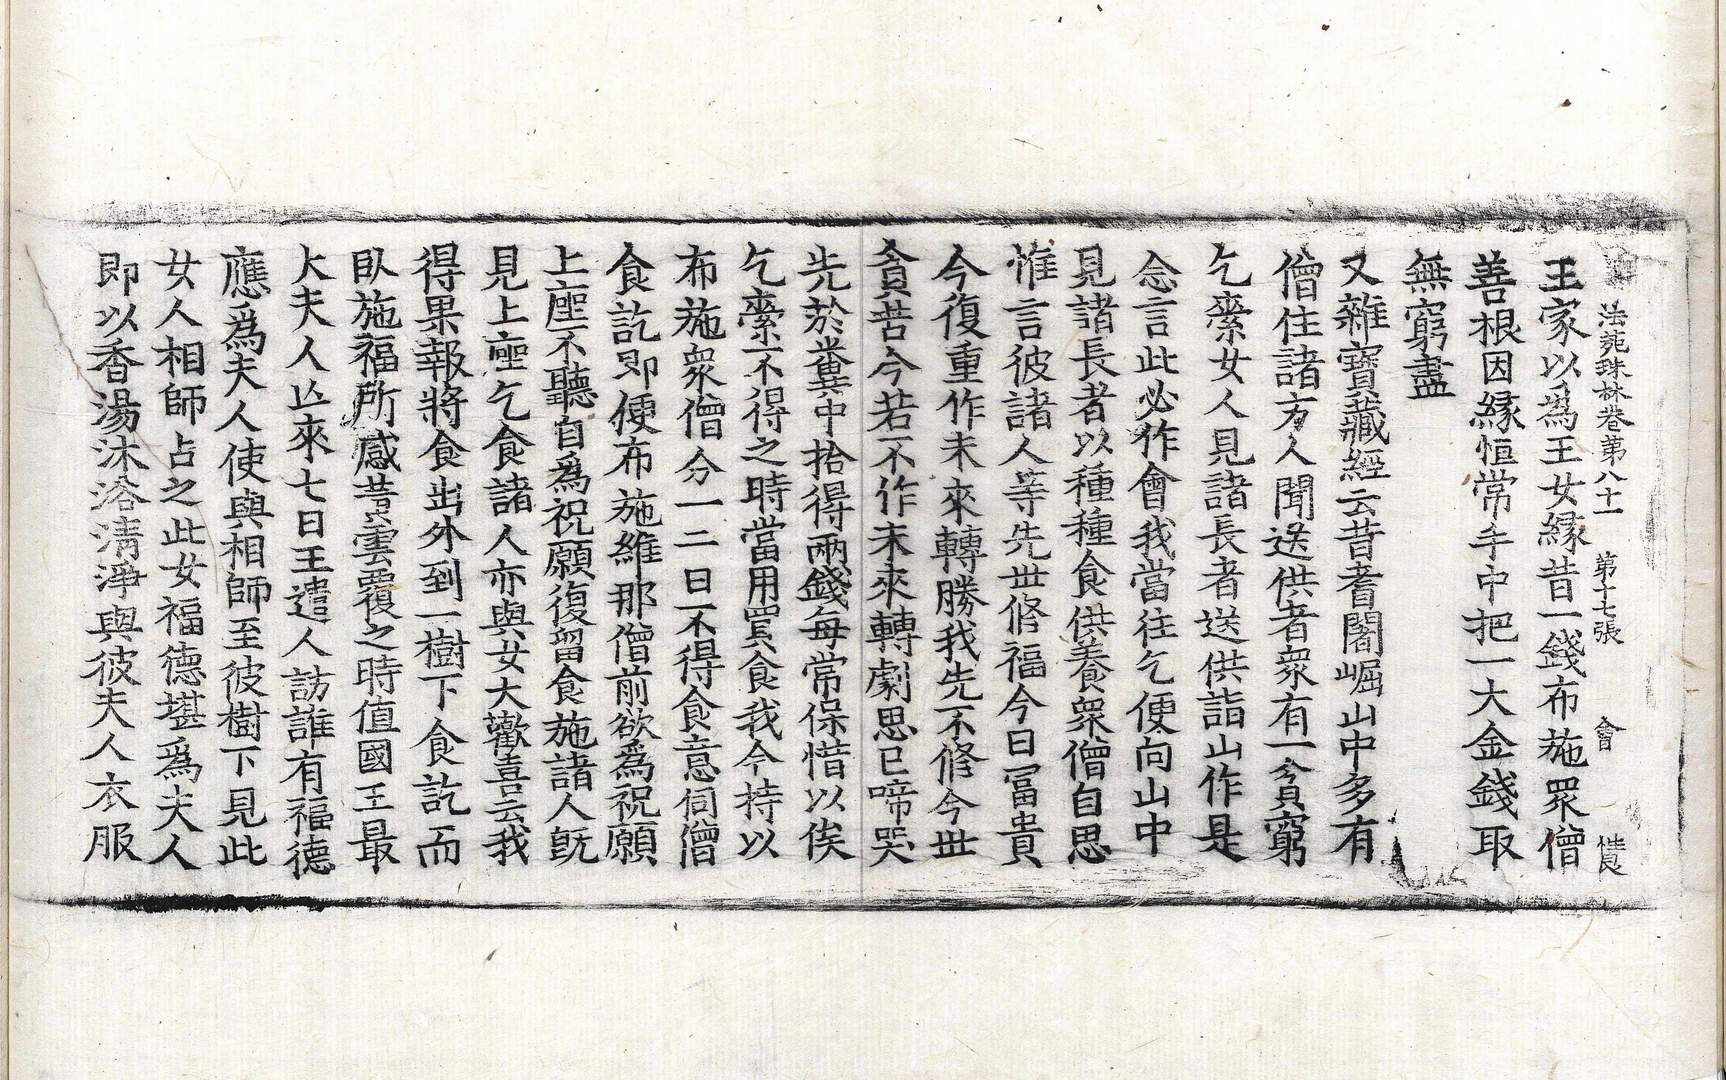 法苑珠林卷第八十一 第十七張 會
王家以爲王女緣昔一錢布施眾僧
善根因緣恒常手中把一大金錢取
無窮盡
又雜寶藏經云昔耆闍崛山中多有
僧住諸方人聞送供者眾有一貧窮
乞索女人見諸長者送供詣山作是
念言此必作會我當往乞便向山中
見諸長者以種種食供養眾僧自思
惟言彼諸人等先世修福今日冨貴
今復重作未來轉勝我先不修今世
貧苦今若不作未來轉劇思已啼哭
先於糞中拾得兩錢每常保惜以俟
乞索不得之時當用買食我今持以
布施眾僧分一二日不得食意伺僧
食訖即便布施維那僧前欲爲祝願
上座不聽自爲祝願復留食施諸人旣
見上座乞食諸人亦與女大歡喜云我
得果報將食出外到一樹下食訖而
臥施福所感黃雲覆之時值國王最
大夫人亾來七日王遣人訪誰有福德
應爲夫人使與相師至彼樹下見此
女人相師占之此女福德堪爲夫人
即以香湯沐浴清淨與彼夫人衣服